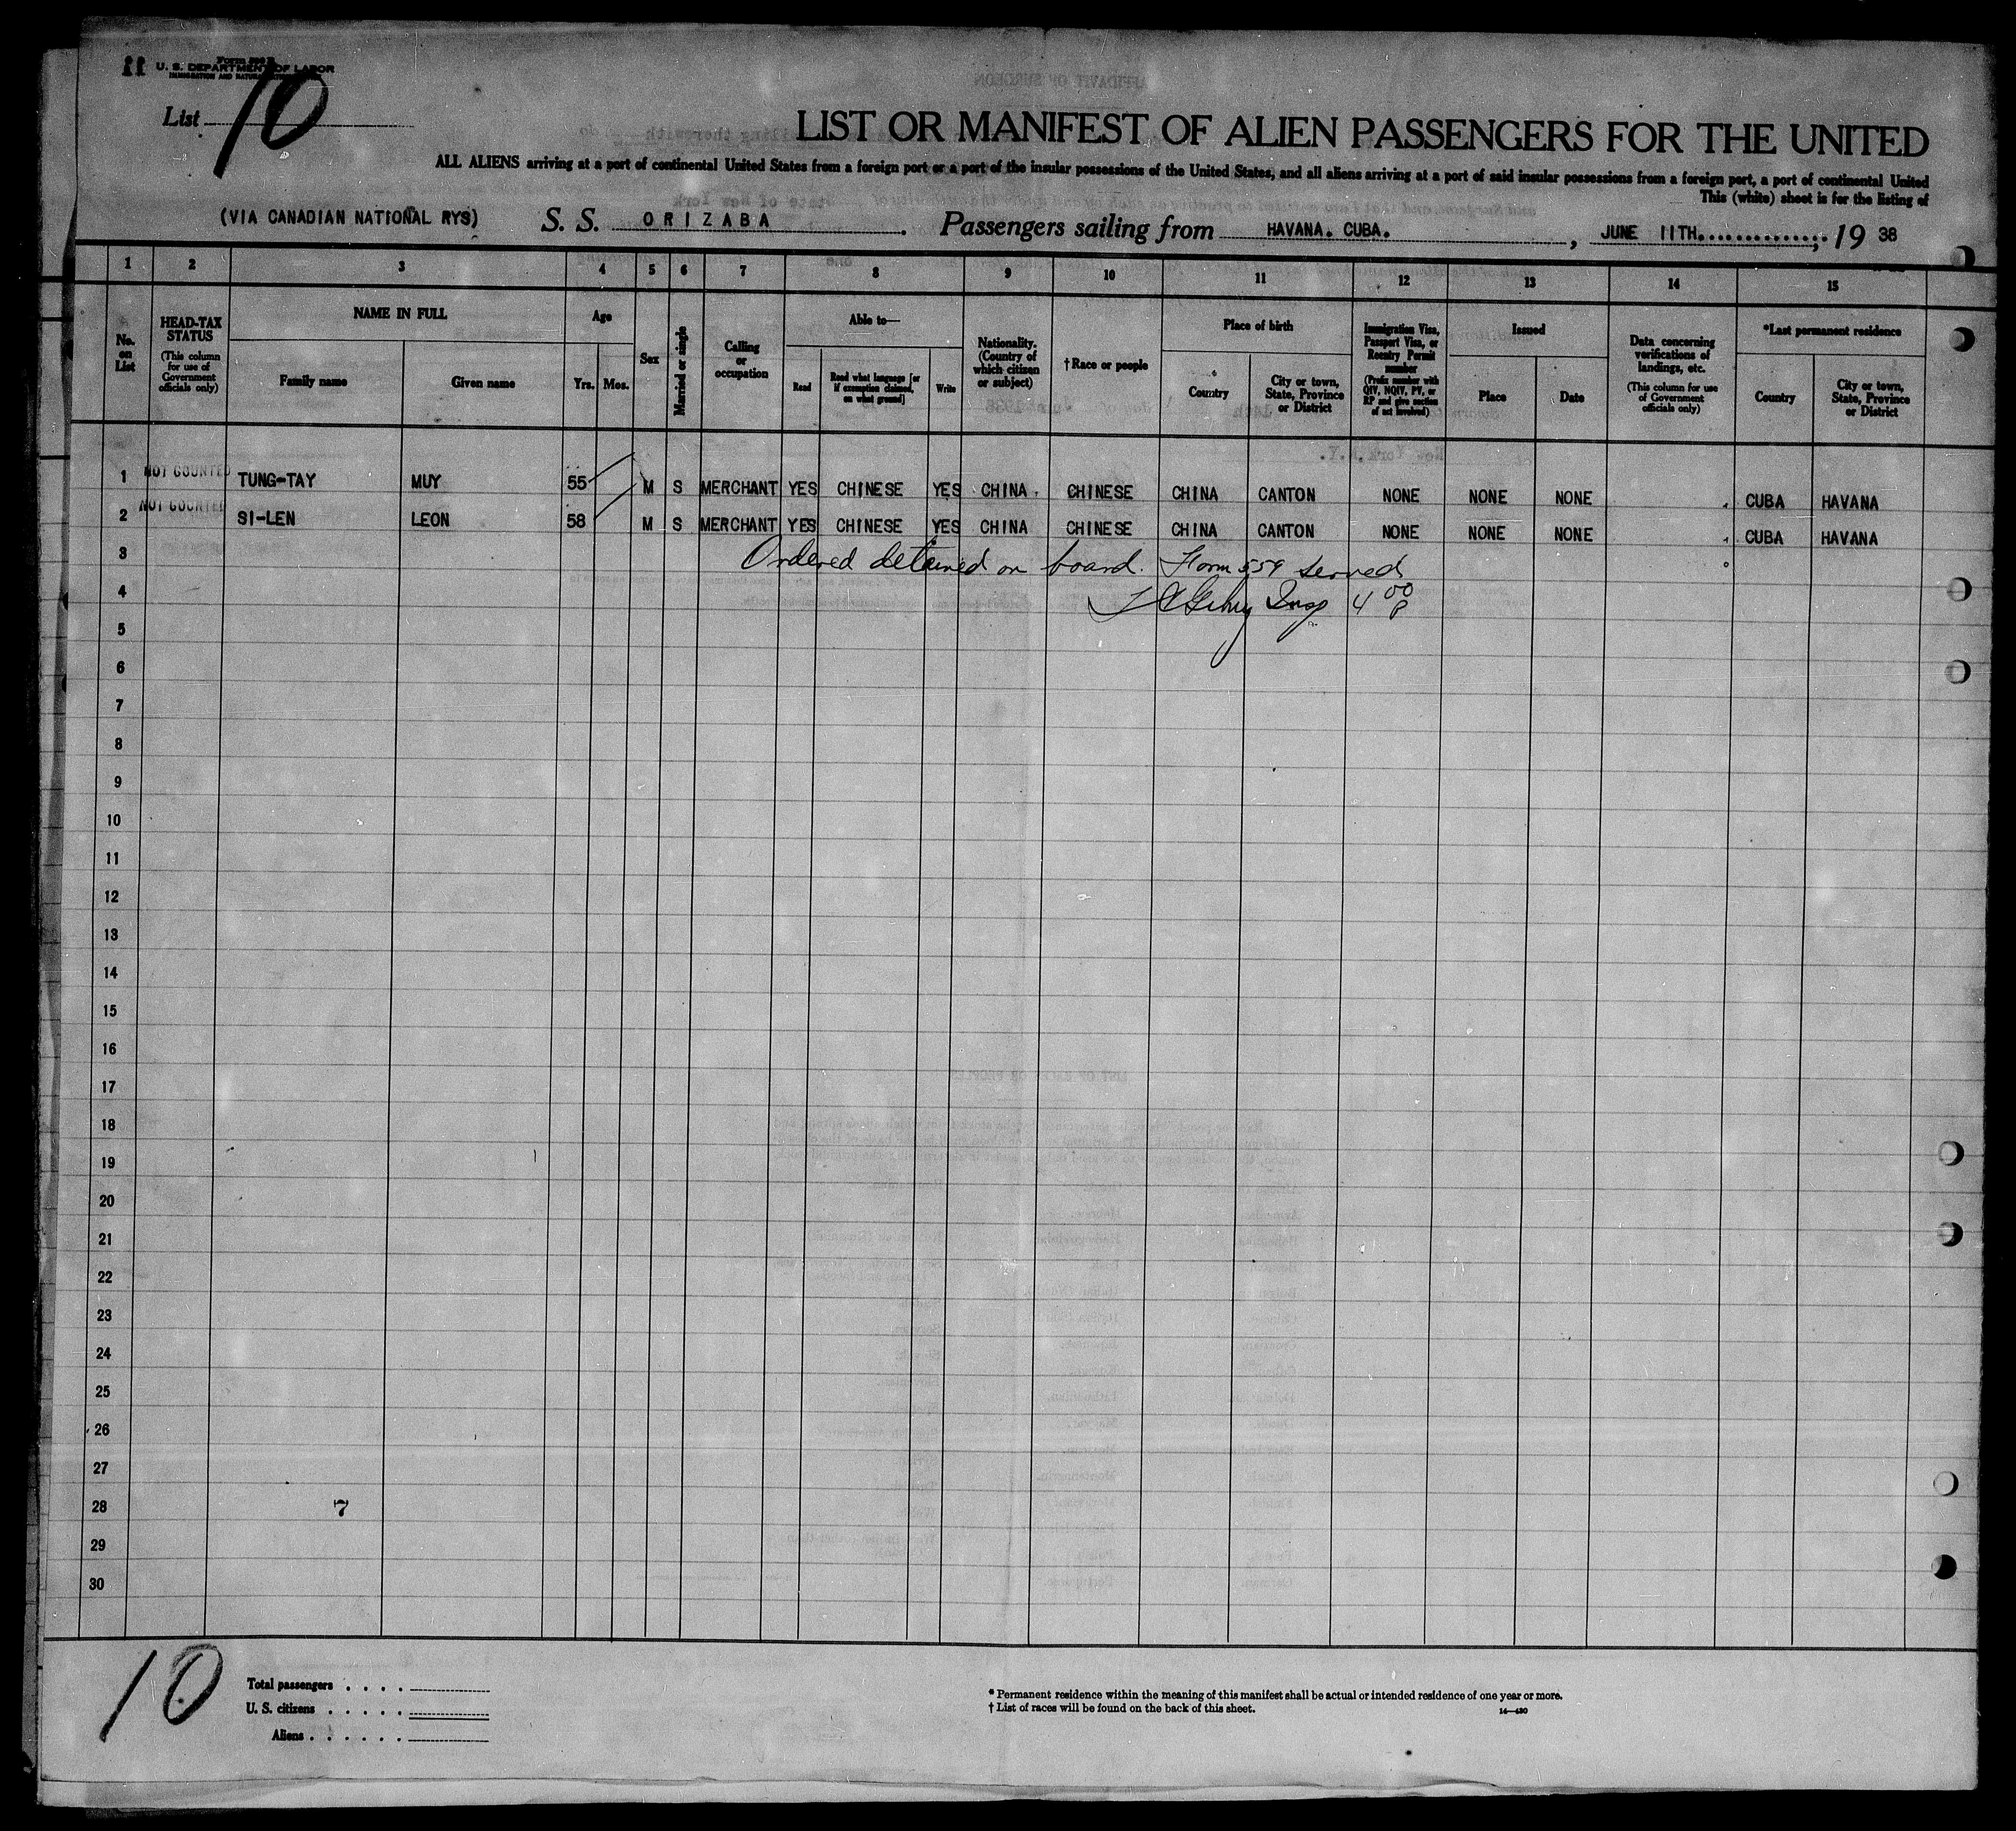 Form 500 B
U. S. DEPARTMENT OF LABOR
IMMIGRATION AND NATURALIZATION
List 10
LIST OR MANIFEST OF ALIEN PASSENGERS FOR THE UNITED
ALL ALIENS arriving at a port of continental United States from a foreign port or a port of the insular possessions of the United States, and all aliens arriving at a port of said insular possessions from a foreign port, a port of continental United
This (white) sheet is for the listing of
(VIA CANADIAN NATIONAL RYS) S. S. ORIZABA. Passengers sailing from HAVANA. CUBA., JUNE 11TH, 19 38
1 2 3 4 5 6 7 8 9 10 11 12 13 14 15
No. on List
HEAD-TAX STATUS
(This column for use of Government officials only)
NAME IN FULL
Family name Given name
Age
Yrs. Mos.
Sex
Married or single
Calling or occupation
Able to—
Read
Read what language [or if exemption claimed, on what ground]
Write
Nationality. (Country of which citizen or subject)
†Race or people
Place of birth
Country
City or town, State, Province or District
Immigration Visa, Passport Visa, or Reentry Permit number
(Prefix number with QIV, NQIV, PV, or RP and give section of act involved)
Issued
Place Date
Data concerning verifications of landings, etc.
(This column for use of Government officials only)
*Last permanent residence
Country
City or town, State, Province or District
1 NOT COUNTED TUNG-TAY MUY 55 M S MERCHANT YES CHINESE YES CHINA. CHINESE CHINA CANTON NONE NONE NONE CUBA HAVANA
2 NOT COUNTED SI-LEN LEON 58 M S MERCHANT YES CHINESE YES CHINA CHINESE CHINA CANTON NONE NONE NONE CUBA HAVANA
3 Ordered detained on board. Form 559 served
4 Insp 4 00 P
5
6
7
8
9
10
11
12
13
14
15
16
17
18
19
20
21
22
23
24
25
26
27
28 7
29
30
10
Total passengers . . . .
U. S. citizens . . . . .
Aliens . . . . . .
* Permanent residence within the meaning of this manifest shall be actual or intended residence of one year or more.
† List of races will be found on the back of this sheet.
14—430